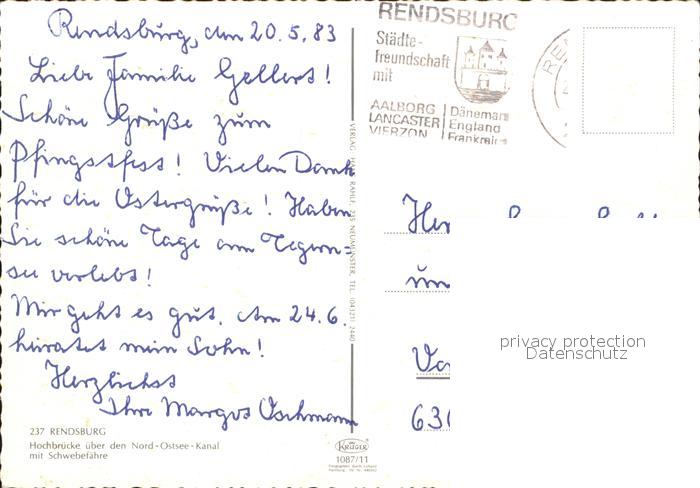 Rendsburg, den 20.5.83
Liebe Familie Gellert!
Schöne Grüße zum
Pfingstfest! Vielen Dank
für die Ostergrüße! Haben
Sie schöne Tage am Tegern=
see verlebt!
Mir geht es gut. Am 24.6.
heiratet mein Sohn!
Herzlichst
Ihre Margot Oschmann
237 RENDSBURG
Hochbrücke über den Nord-Ostsee-Kanal
mit Schwebefähre
KRÜGER
1087/11
RENDSBURG
Städte-
freundschaft
mit
AALBORG Dänemark
LANCASTER England
VIERZON Frankreich
REN
Her
und
630
privacy protection
Datenschutz